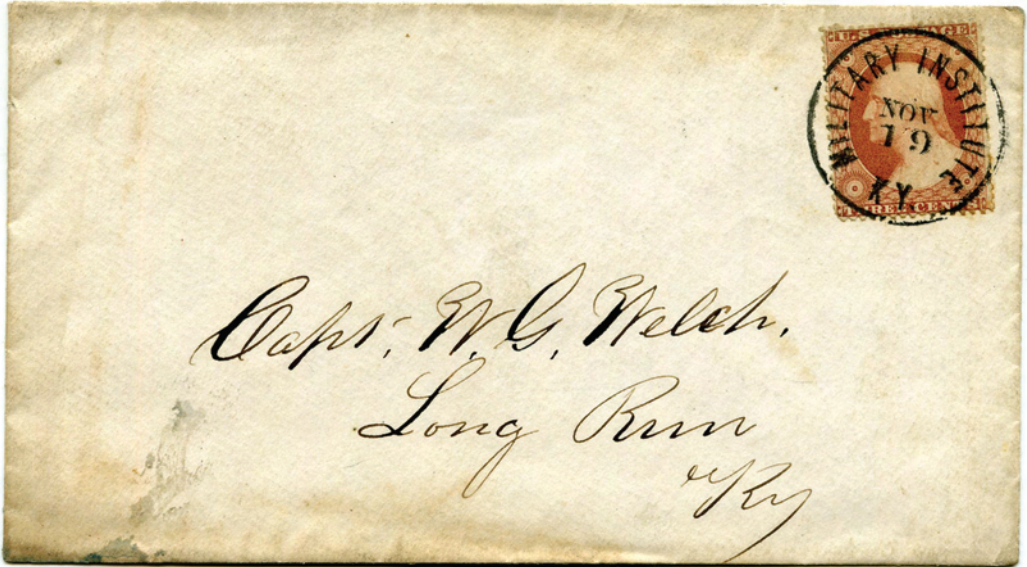 U.S. POSTAGE
MILITARY INSTITUTE
NOV
19
KY.
THREE CENTS
Capt. W. G. Welch.
Long Run
Ky